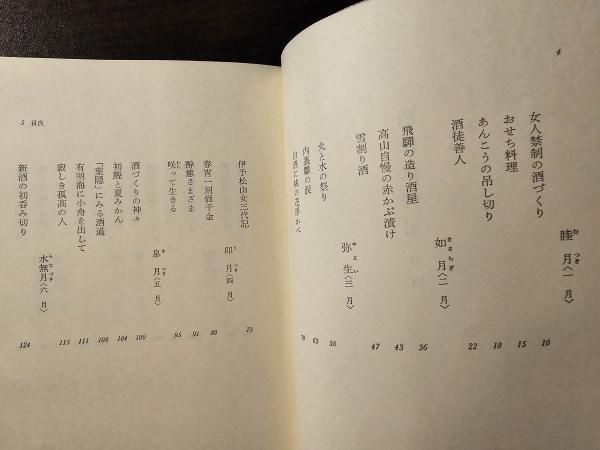 4
睦月〈一月〉
むつき
女人禁制の酒づくり 10
おせち料理 15
あんこうの吊し切り 18
酒徒善人 22
如月〈二月〉
きさらぎ
飛騨の造り酒屋 36
高山自慢の赤かぶ漬け 43
雪割り酒 47
弥生〈三月〉
やよい
火と水の祭り 58
内裏雛の涙 63
白酒に桃の花浮かべ 70
卯月〈四月〉
うづき
伊予松山女三代記 73
春宵一刻価千金 80
酔態さまざま 91
咲って生きる 95
皐月〈五月〉
さつき
酒づくりの神々 100
初鰹と夏みかん 104
「葉隠」にみる酒道 108
有明海に小舟を出して 111
寂しき孤高の人 115
水無月〈六月〉
みなづき
新酒の初呑み切り 124
5 目次